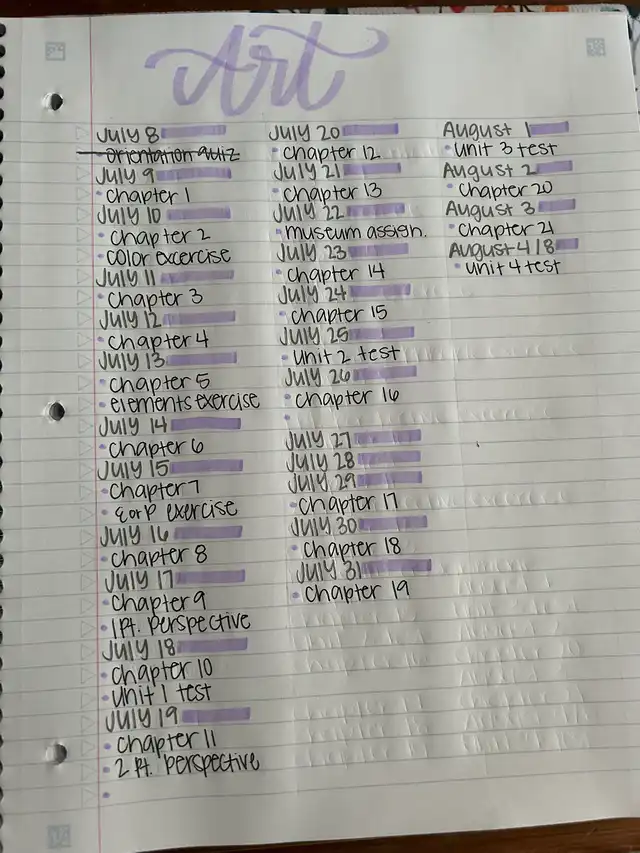 Art
July 8
orientation quiz
July 9
chapter 1
July 10
chapter 2
color excercise
July 11
chapter 3
July 12
chapter 4
July 13
chapter 5
elements exercise
July 14
chapter 6
July 15
chapter 7
E or P exercise
July 16
chapter 8
July 17
chapter 9
1 Pt. perspective
July 18
chapter 10
unit 1 test
July 19
chapter 11
2 Pt. perspective
July 20
chapter 12
July 21
chapter 13
July 22
museum assign.
July 23
chapter 14
July 24
chapter 15
July 25
unit 2 test
July 26
chapter 16
July 27
July 28
July 29
chapter 17
July 30
chapter 18
July 31
chapter 19
August 1
unit 3 test
August 2
chapter 20
August 3
chapter 21
August 4/8
unit 4 test